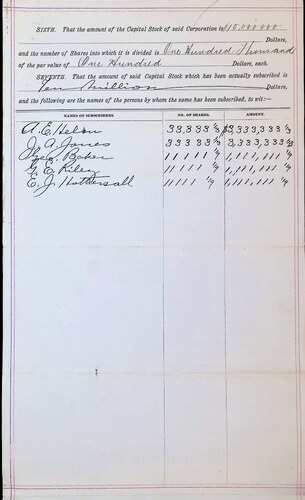 SIXTH. That the amount of the Capital Stock of said Corporation is $10,000,000
Dollars,
and the number of Shares into which it is divided is One Hundred Thousand
of the par value of One Hundred Dollars, each.
SEVENTH. That the amount of said Capital Stock which has been actually subscribed is
Ten Million Dollars,
and the following are the names of the persons by whom the same has been subscribed, to wit:—
NAMES OF SUBSCRIBERS. NO. OF SHARES. AMOUNT.
A. E. Nelson 33,333 1/3 $3,333,333 1/3
J. A. Jones 33333 1/3 3,333,333 1/3
Baker 11111 1/9 1,111,111 1/9
G. E. Riley 11111 1/9 1,111,111 1/9
E. J. Hothersall 11111 1/9 1,111,111 1/9